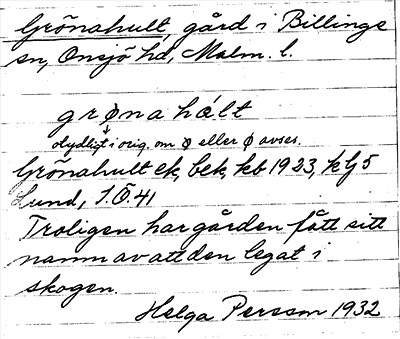 Grönahult, gård i Billinge
sn, Onsjö hd, Malm. l.
grøna hált
otydligt i orig. om ø eller ǿ avses.
Grönahult ek, bek, kb 1923, klj 5
Lund, 1. Ö. 41
Troligen har gården fått sitt
namn av att den legat i
skogen.
Helga Persson 1932